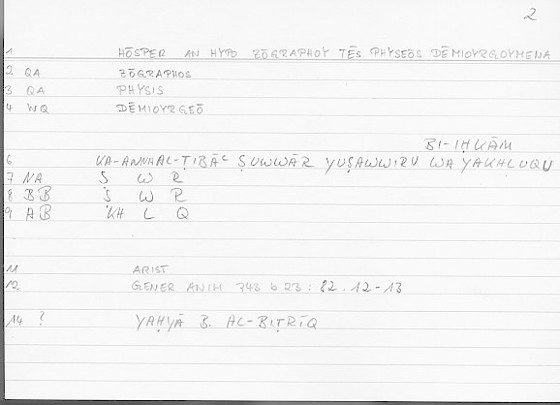 2
1 HŌSPER AN HYPO ZŌGRAPHOY TĒS PHYSEŌS DĒMIOYRGOYMENA
2 QA ZŌGRAPHOS
3 QA PHYSIS
4 WQ DĒMIOYRGEŌ
BI-IḤKĀM
6 KA-ANNA AL-ṬIBĀʿ ṢUWWĀR YUṢAWWIRU WA YAKHLUQU
7 NA Ṣ W R
8 BB Ṣ W R
9 AB KH L Q
11 ARIST
12 GENER ANIM 743 b 23 : 82.12-13
14 ? YAḤYĀ B. AL-BIṬRĪQ